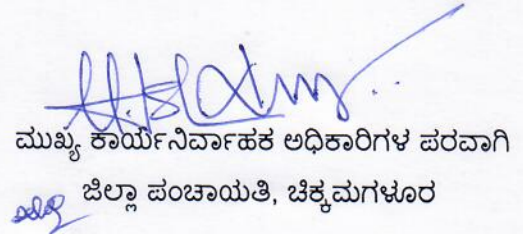 ಮುಖ್ಯ ಕಾರ್ಯನಿರ್ವಾಹಕ ಅಧಿಕಾರಿಗಳ ಪರವಾಗಿ
ಜಿಲ್ಲಾ ಪಂಚಾಯತಿ, ಚಿಕ್ಕಮಗಳೂರ